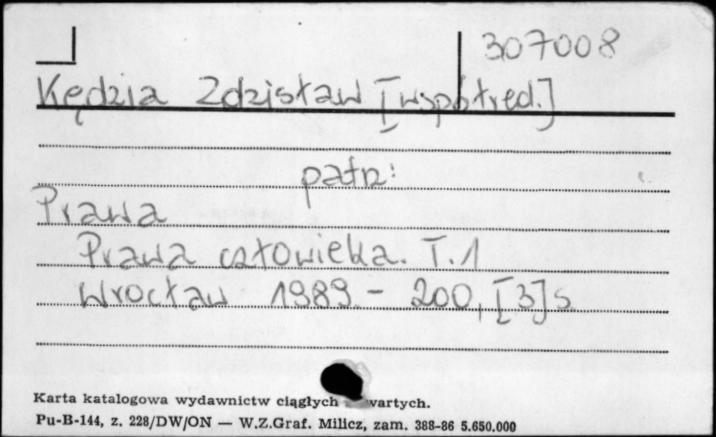 307008
Kędzia Zdzisław [współred.]
patrz:
Prawa
Prawa człowieka. T.1
Wrocław 1989. - 200, [3] s
Karta katalogowa wydawnictw ciągłych wartych.
Pu-B-144, z. 228/DW/ON — W.Z.Graf. Milicz, zam. 388-86 5.650.000